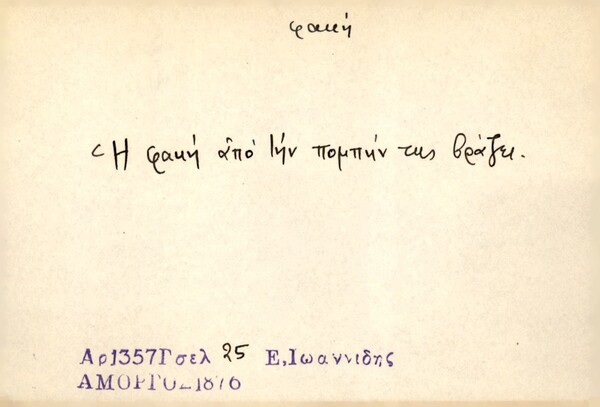 φακή
Ἡ φακή ἀπό τήν πομπήν της βράζει.
Αρ1357Γσελ 25 Ε,Ιωαννιδης
ΑΜΟΡΓΟΣ1876